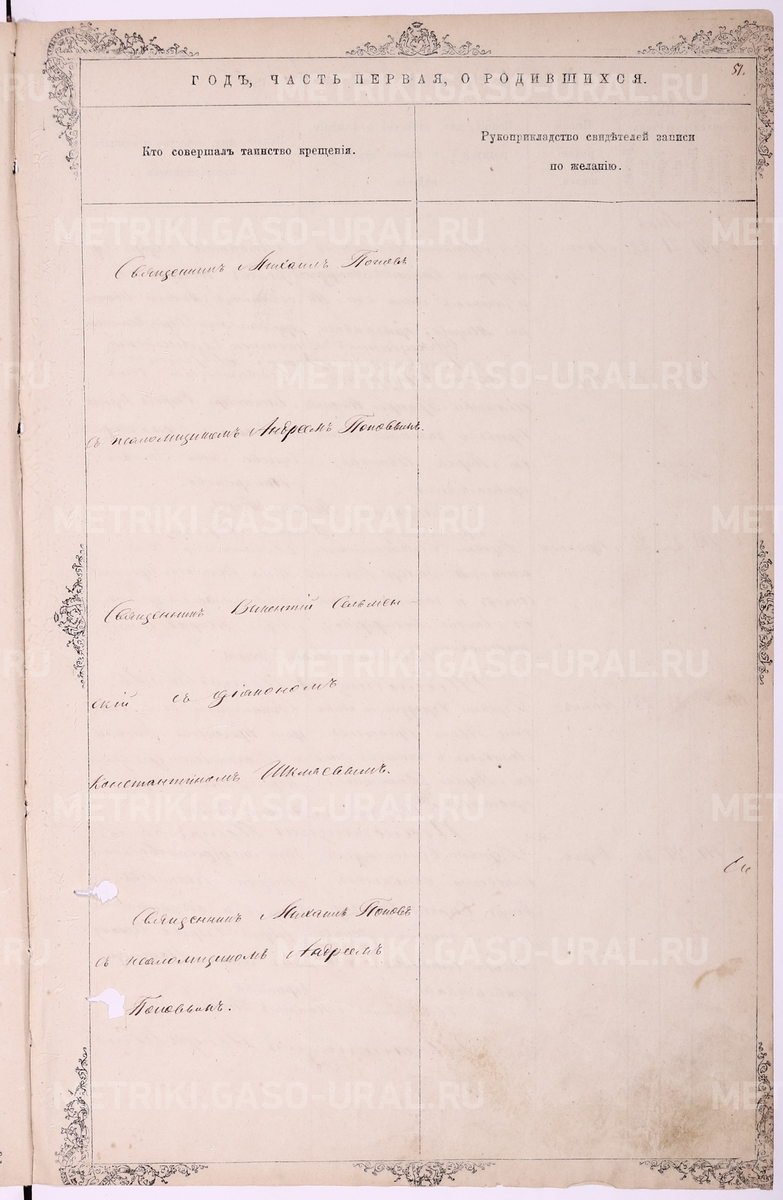 51.
ГОДЪ, ЧАСТЬ ПЕРВАЯ, О РОДИВШИХСЯ.
Кто совершалъ таинство крещенія.
Рукоприкладство свидѣтелей записи
по желанію.
Священникъ Михаилъ Поповъ
съ псаломщикомъ Андреемъ Поповымъ.
Священникъ Викентій Сельмен-
скій съ діакономъ
Константиномъ Шкляевымъ.
Священникъ Михаилъ Поповъ
съ псаломщикомъ Андреемъ
Поповымъ.
METRIKI.GASO-URAL.RU